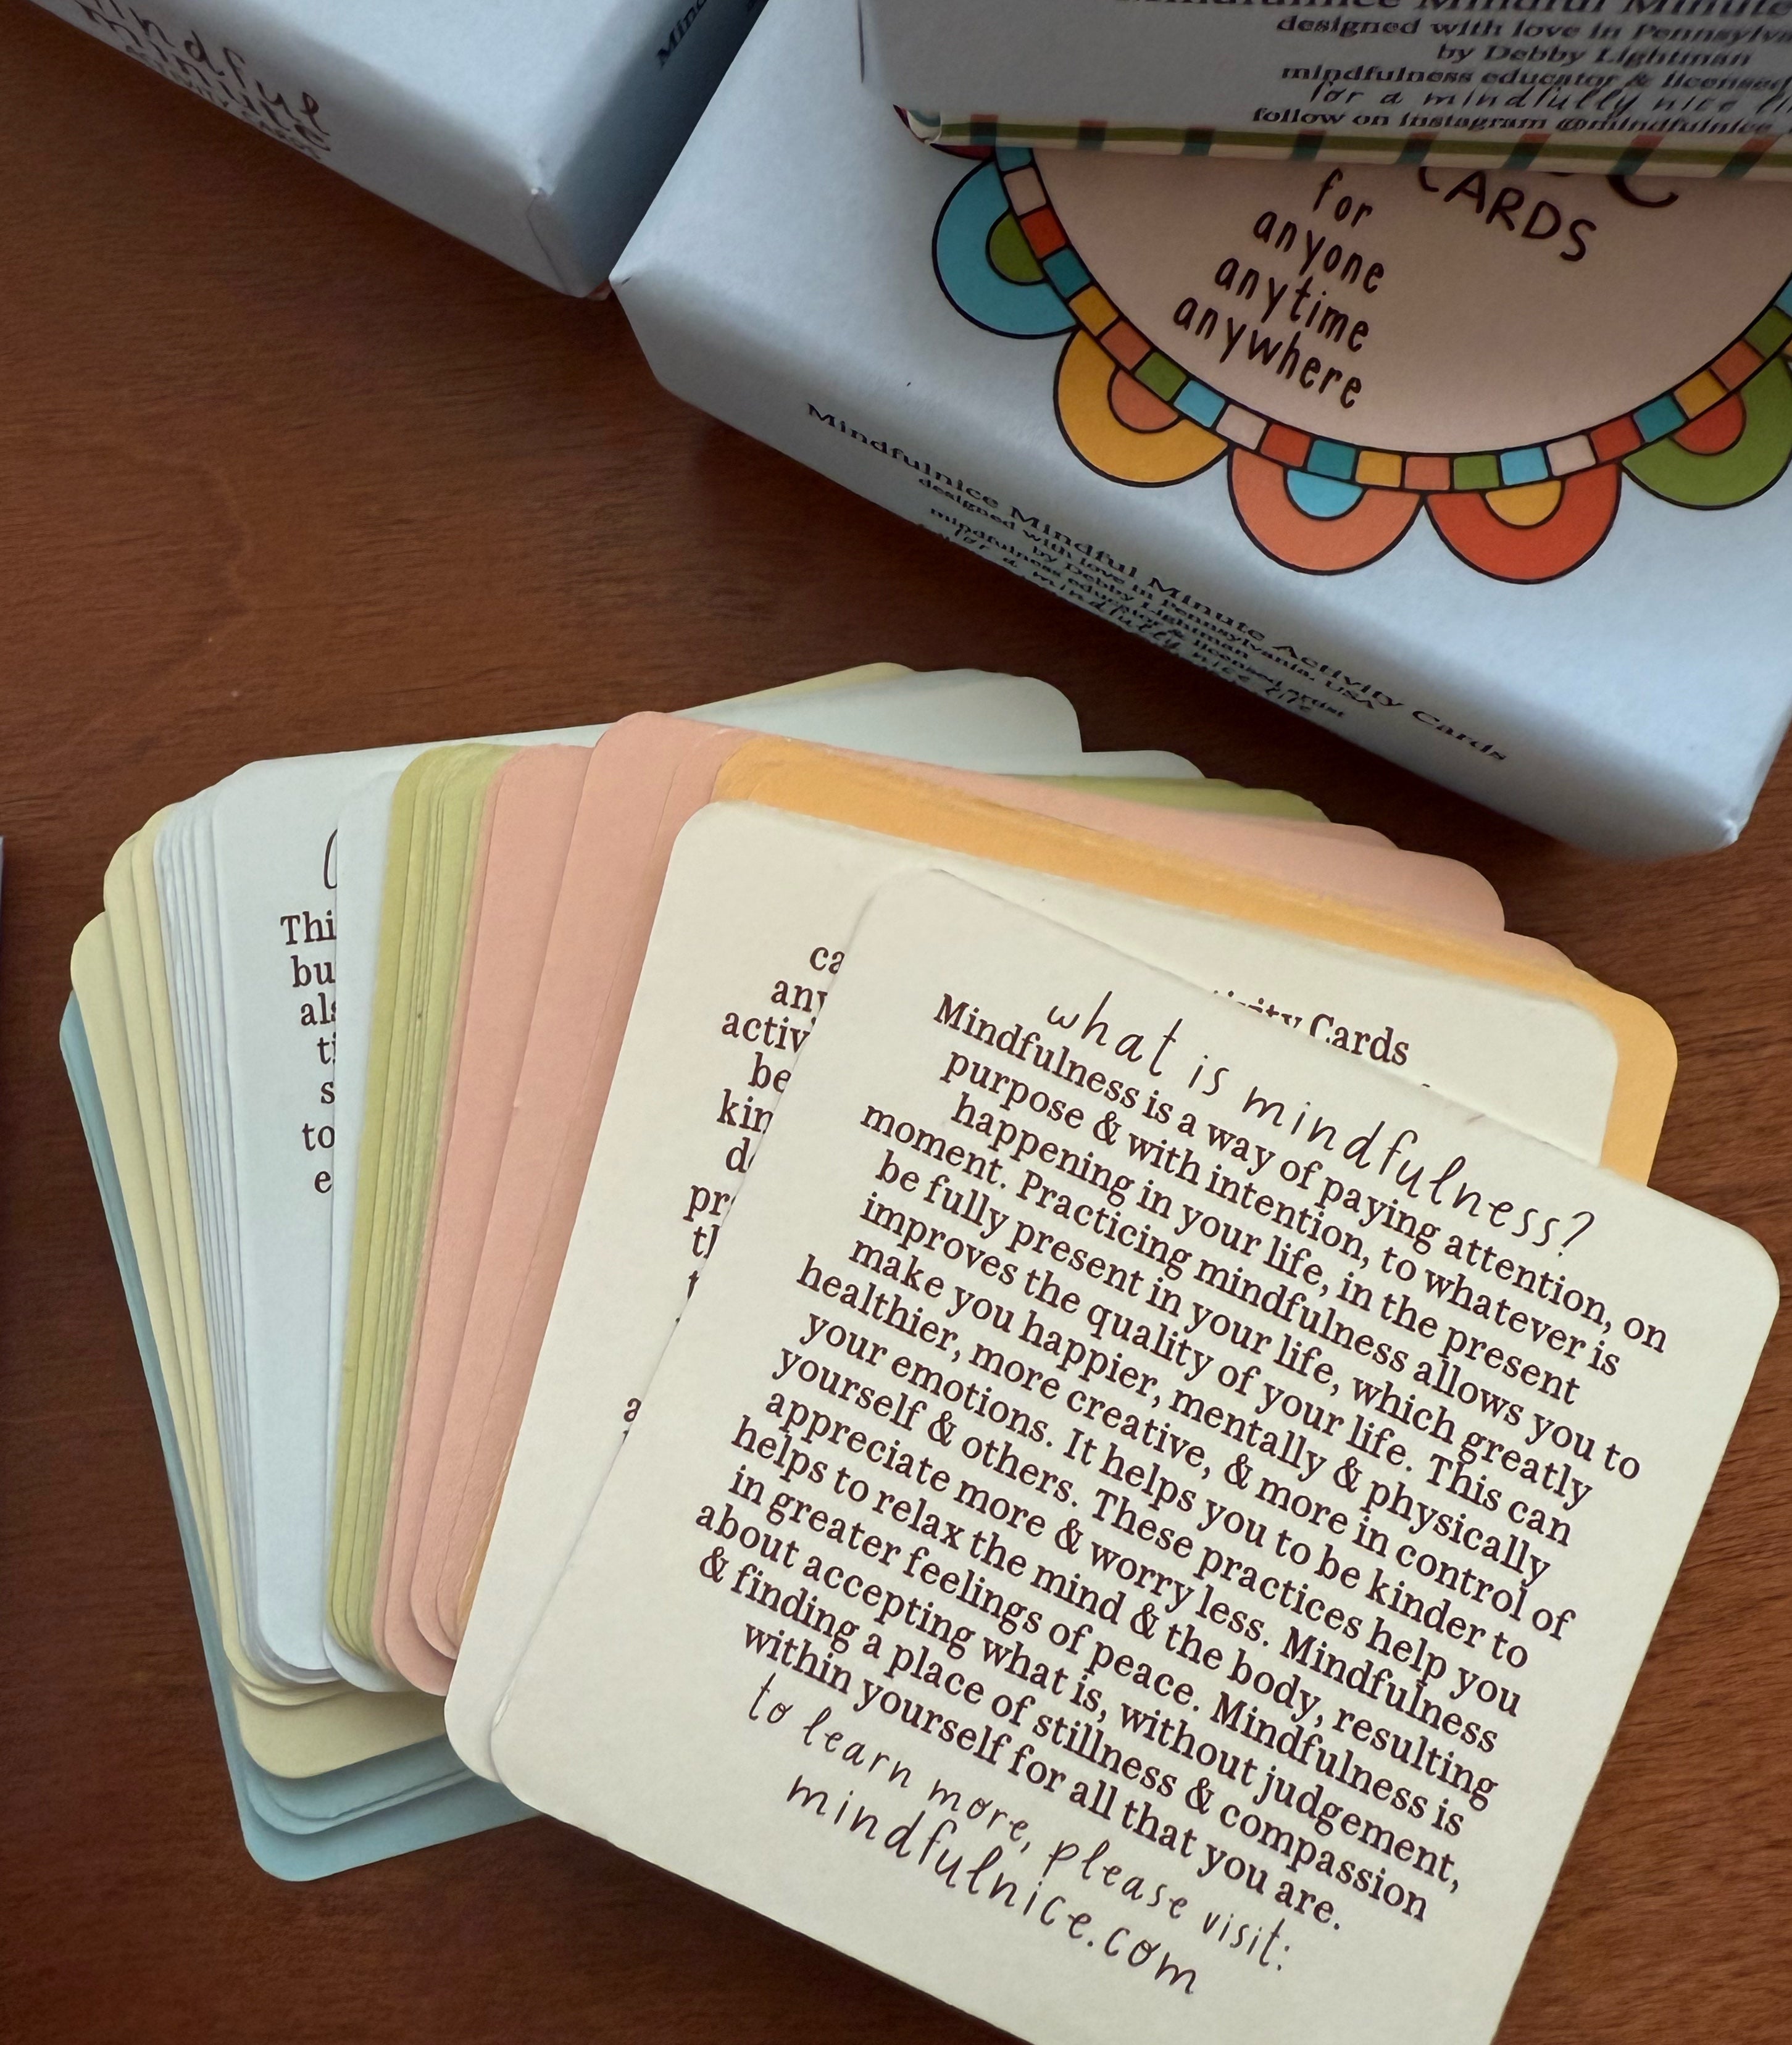 mindful
minute
Mind
Mindfulnice Mindful Minute
designed with love in
by Debby Lightman
mindfulness educator & licensed
for a mindfully nice
follow on instagram @mindfulnice
CARDS
for
anyone
anytime
anywhere
Mindfulnice Mindful Minute Activity Cards
designed with love in Pennsylvania, USA
by Debby Lightman
mindfulness educator & licensed artist
for a mindfully nice life
Thi
bu
als
ti
s
to
e
Cards
ca
any
activ
be
kin
pr
a
what is mindfulness?
Mindfulness is a way of paying attention, on
purpose & with intention, to whatever is
happening in your life, in the present
moment. Practicing mindfulness allows you to
be fully present in your life, which greatly
improves the quality of your life. This can
make you happier, mentally & physically
healthier, more creative, & more in control of
your emotions. It helps you to be kinder to
yourself & others. These practices help you
appreciate more & worry less. Mindfulness
helps to relax the mind & the body, resulting
in greater feelings of peace. Mindfulness is
about accepting what is, without judgement,
& finding a place of stillness & compassion
within yourself for all that you are.
to learn more, please visit:
mindfulnice.com